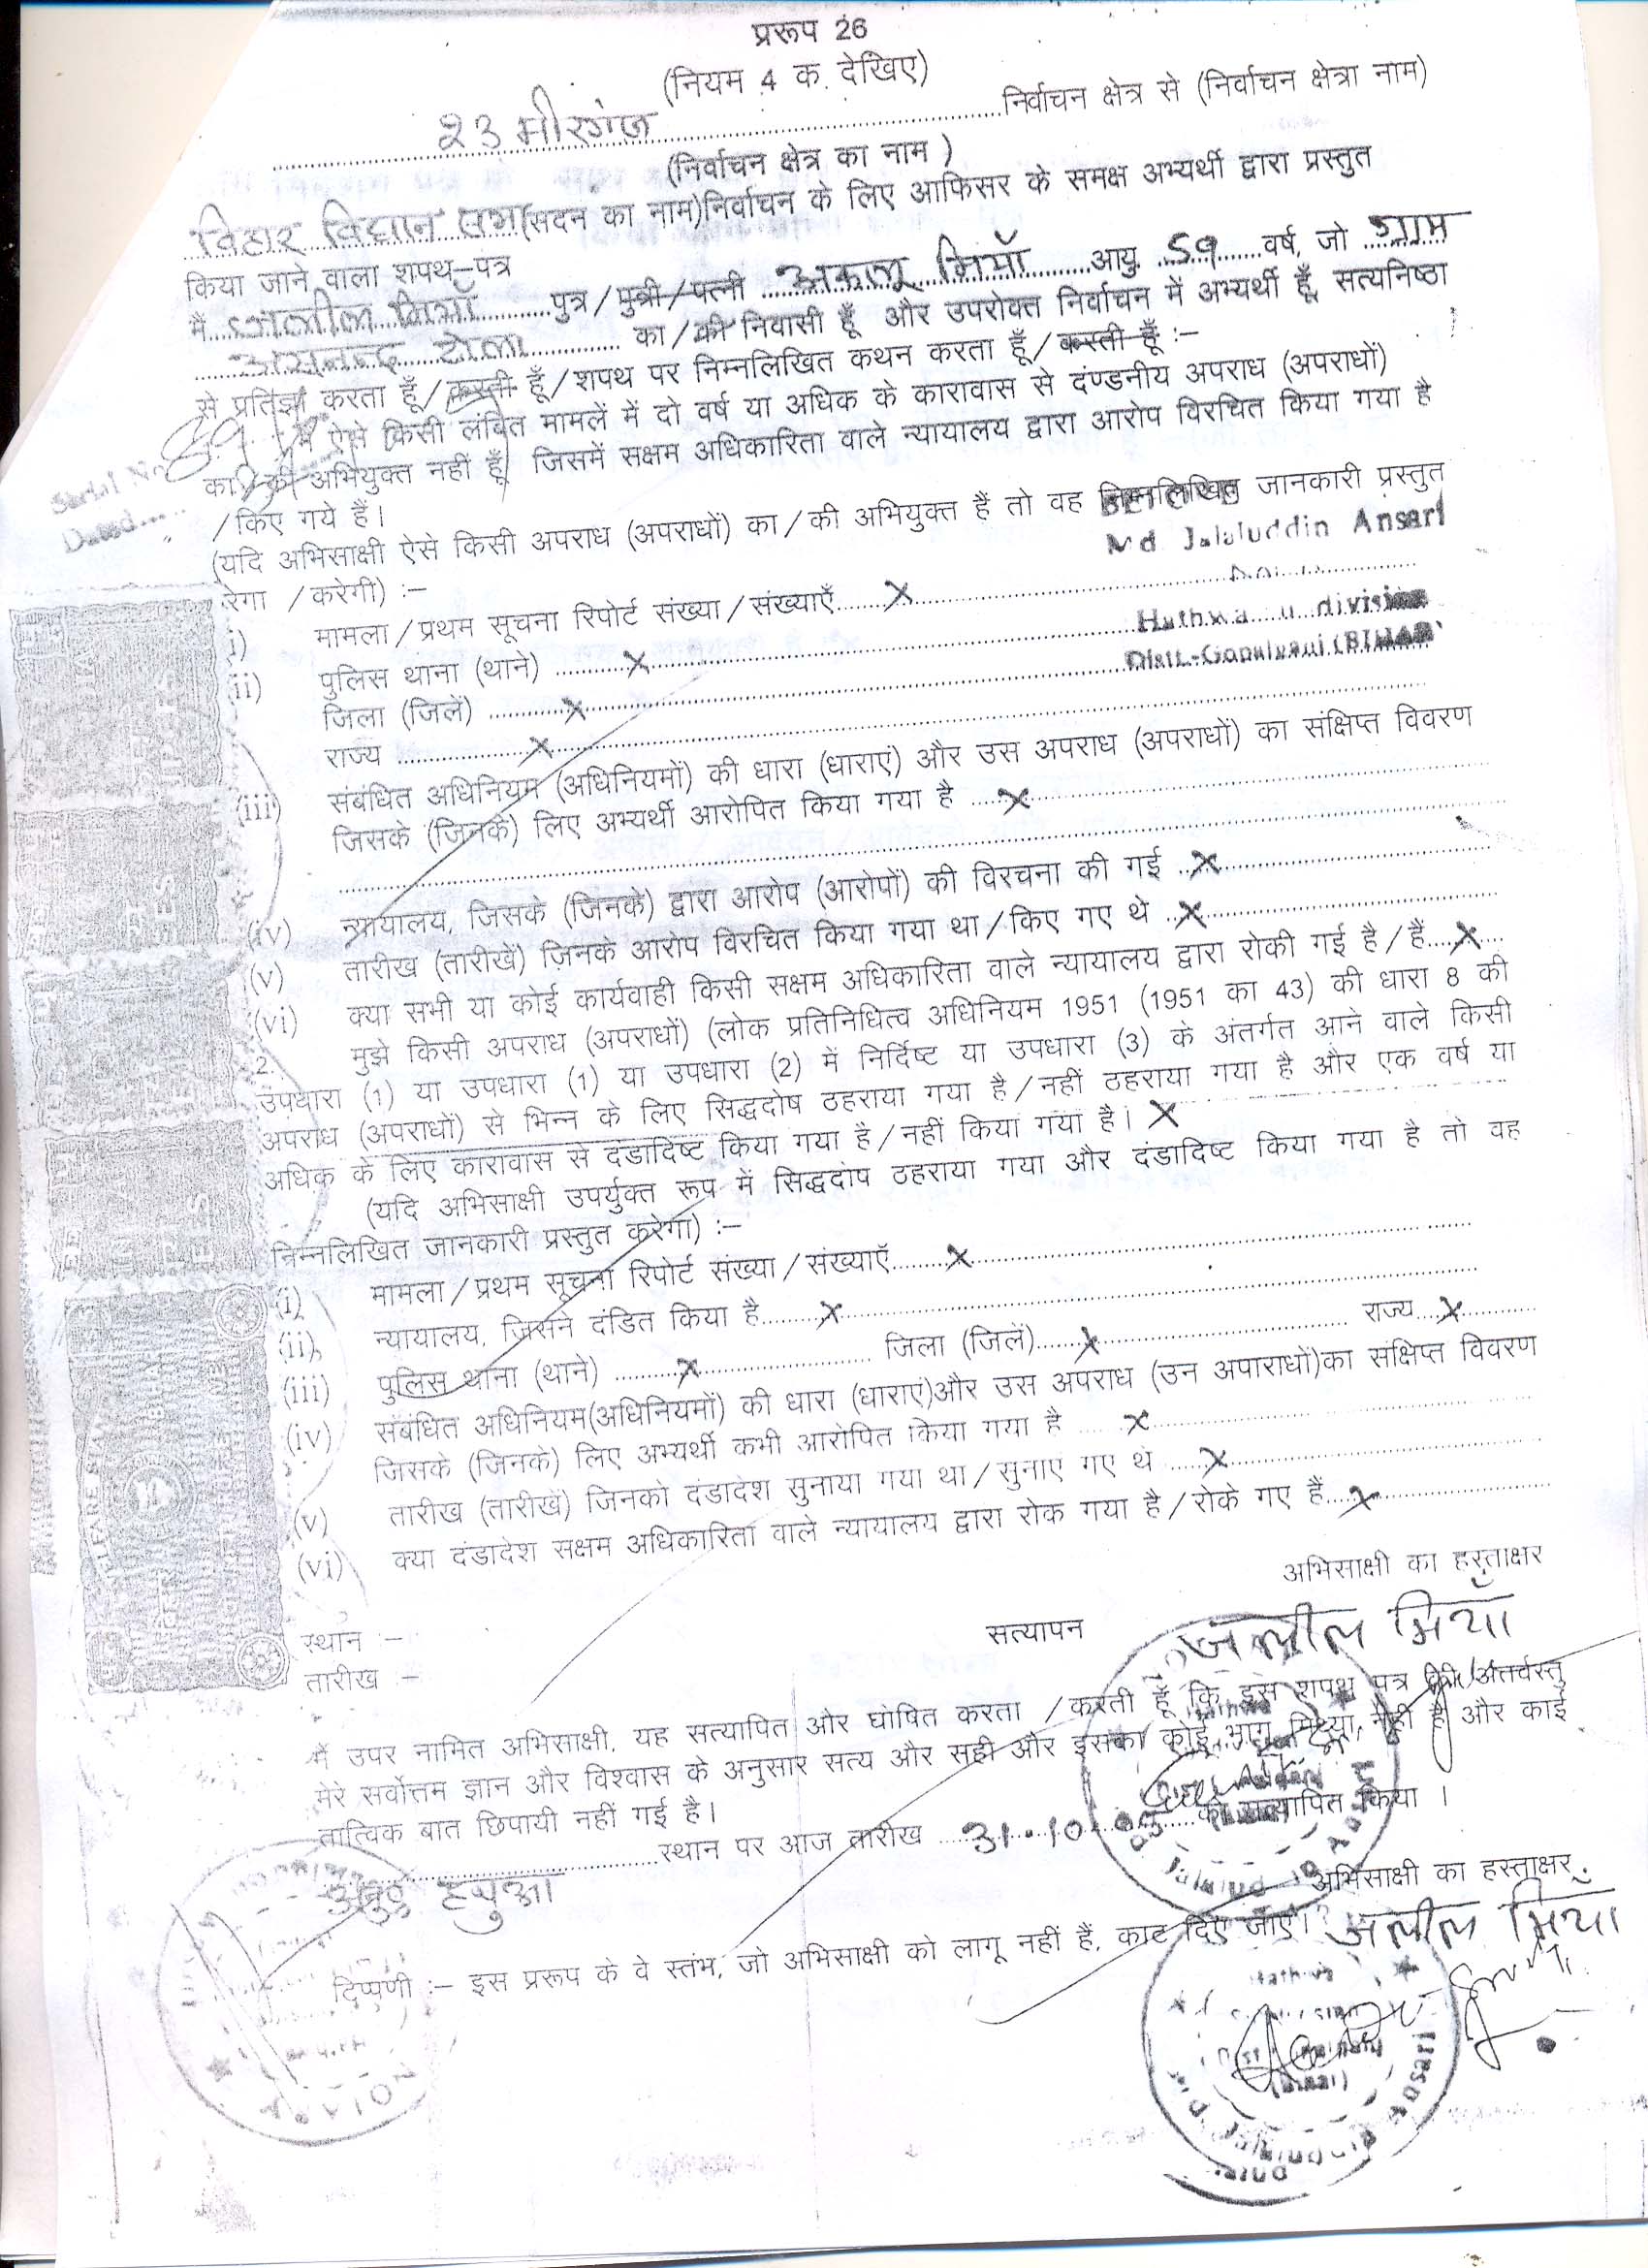 प्ररूप 26
(नियम 4 क देखिए)
23 मीरगंज निर्वाचन क्षेत्र से (निर्वाचन क्षेत्रा नाम)
(निर्वाचन क्षेत्र का नाम )
बिहार विधान सभा(सदन का नाम)निर्वाचन के लिए आफिसर के समक्ष अभ्यर्थी द्वारा प्रस्तुत
किया जाने वाला शपथ-पत्र
मैं जलील मियाँ पुत्र/पुत्री/पत्नी अकलू मियाँ आयु 59 वर्ष, जो ग्राम
टोला का/की निवासी हूँ और उपरोक्त निर्वाचन में अभ्यर्थी हूँ, सत्यनिष्ठा
से प्रतिज्ञा करता हूँ/करती हूँ/शपथ पर निम्नलिखित कथन करता हूँ/करती हूँ :-
मैं ऐसे किसी लंबित मामलें में दो वर्ष या अधिक के कारावास से दंण्डनीय अपराध (अपराधों)
का/की अभियुक्त नहीं हूँ जिसमें सक्षम अधिकारिता वाले न्यायालय द्वारा आरोप विरचित किया गया है
/किए गये हैं।
Serial No
Dated
(यदि अभिसाक्षी ऐसे किसी अपराध (अपराधों) का/की अभियुक्त हैं तो वह निम्नलिखित जानकारी प्रस्तुत
Md Jalaluddin Ansari
रेगा /करेगी) :-
(i) मामला/प्रथम सूचना रिपोर्ट संख्या/संख्याएँ X
Hathwa division
(ii) पुलिस थाना (थाने) X
Distt.-Gopalganj (BIHAR)
जिला (जिलें) X
राज्य X
(iii) संबंधित अधिनियम (अधिनियमों) की धारा (धाराएं) और उस अपराध (अपराधों) का संक्षिप्त विवरण
जिसके (जिनके) लिए अभ्यर्थी आरोपित किया गया है X
(iv) न्यायालय, जिसके (जिनके) द्वारा आरोप (आरोपों) की विरचना की गई X
(v) तारीख (तारीखें) जिनके आरोप विरचित किया गया था/किए गए थे X
(vi) क्या सभी या कोई कार्यवाही किसी सक्षम अधिकारिता वाले न्यायालय द्वारा रोकी गई है/हैं X
2. मुझे किसी अपराध (अपराधों) (लोक प्रतिनिधित्व अधिनियम 1951 (1951 का 43) की धारा 8 की
उपधारा (1) या उपधारा (1) या उपधारा (2) में निर्दिष्ट या उपधारा (3) के अंतर्गत आने वाले किसी
अपराध (अपराधों) से भिन्न के लिए सिद्धदोष ठहराया गया है/नहीं ठहराया गया है और एक वर्ष या
अधिक के लिए कारावास से दंडादिष्ट किया गया है/नहीं किया गया है। X
(यदि अभिसाक्षी उपर्युक्त रूप में सिद्धदोष ठहराया गया और दंडादिष्ट किया गया है तो वह
निम्नलिखित जानकारी प्रस्तुत करेगा) :-
(i) मामला/प्रथम सूचना रिपोर्ट संख्या/संख्याएँ X
(ii) न्यायालय, जिसने दंडित किया है X
(iii) पुलिस थाना (थाने) X जिला (जिलें) X राज्य X
(iv) संबंधित अधिनियम(अधिनियमों) की धारा (धाराएं)और उस अपराध (उन अपाराधों)का संक्षिप्त विवरण
जिसके (जिनके) लिए अभ्यर्थी कभी आरोपित किया गया है X
(v) तारीख (तारीखें) जिनको दंडादेश सुनाया गया था/सुनाए गए थे X
(vi) क्या दंडादेश सक्षम अधिकारिता वाले न्यायालय द्वारा रोक गया है/रोके गए हैं X
अभिसाक्षी का हस्ताक्षर
जलील मियाँ
स्थान :-
तारीख -
सत्यापन
मैं उपर नामित अभिसाक्षी, यह सत्यापित और घोषित करता /करती हूँ कि इस शपथ पत्र की अंतर्वस्तु
मेरे सर्वोत्तम ज्ञान और विश्वास के अनुसार सत्य और सही और इसका कोई भाग मिथ्या नहीं है और कोई
तात्विक बात छिपायी नहीं गई है।
स्थान पर आज तारीख 31.10.05 को सत्यापित किया ।
अभिसाक्षी का हस्ताक्षर
जलील मियाँ
दिप्पणी :- इस प्ररूप के वे स्तंभ, जो अभिसाक्षी को लागू नहीं हैं, काट दिए जाएं।